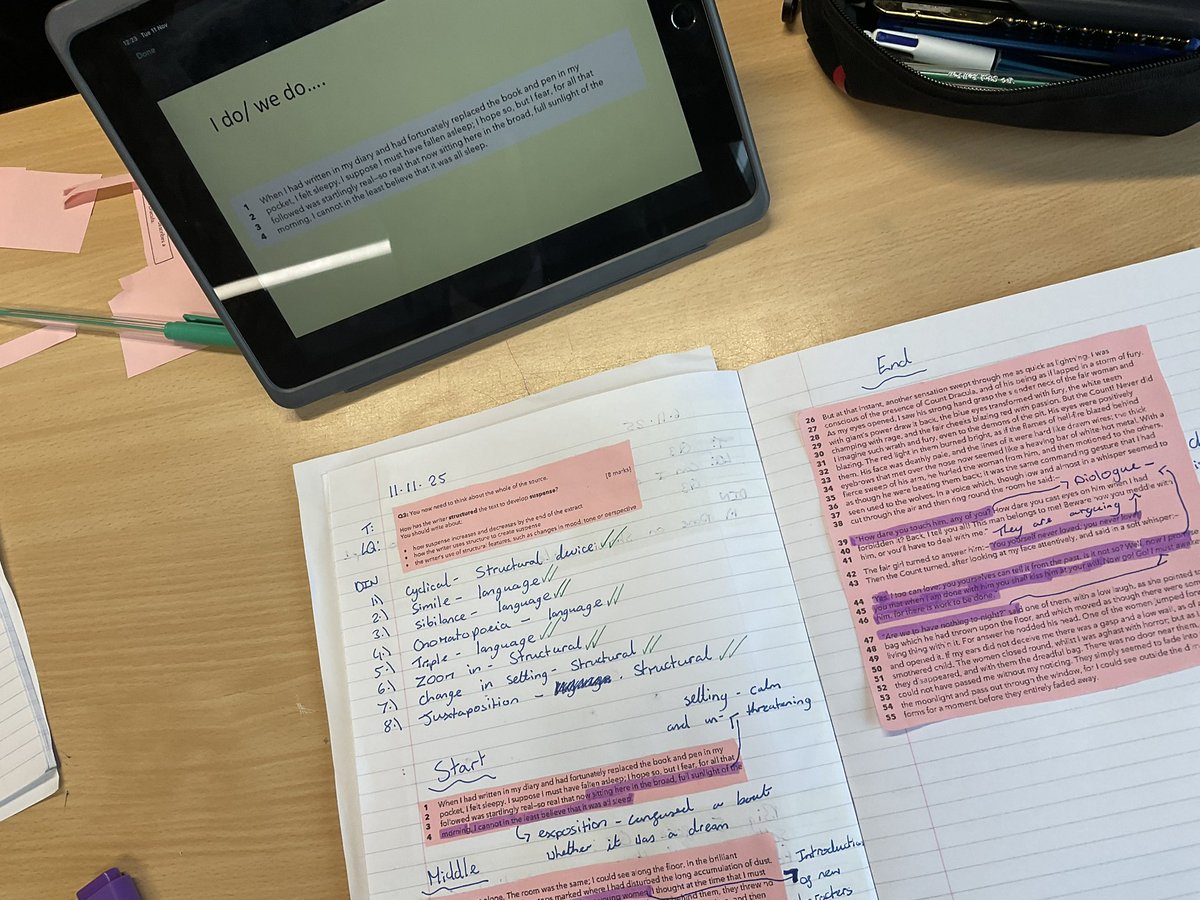 12:23 Tue 11 Nov
Done
I do/ we do....
1 When I had written in my diary and had fortunately replaced the book and pen in my
2 pocket, I felt sleepy. I suppose I must have fallen asleep; I hope so, but I fear, for all that
3 followed was startlingly real–so real that now sitting here in the broad, full sunlight of the
4 morning, I cannot in the least believe that it was all sleep.
11.11.25
Q3: You now need to think about the whole of the source.
[8 marks]
How has the writer structured the text to develop suspense?
You should write about:
• how suspense increases and decreases by the end of the extract
• how the writer uses structure to create suspense
• the writer's use of structural features, such as changes in mood, tone or perspective
T:
LQ:
DIN
1.) Cyclical - Structural device
2.) Simile - language
3.) Sibilance - language
4.) Onomatopoeia - language
5.) Triple - language
6.) Zoom in - Structural
7.) Change in setting - Structural
8.) Juxtaposition - Structural
setting - calm
and un-threatening
Start
1 When I had written in my diary and had fortunately replaced the book and pen in my
2 pocket, I felt sleepy. I suppose I must have fallen asleep; I hope so, but I fear, for all that
3 followed was startlingly real–so real that now sitting here in the broad, full sunlight of the
4 morning, I cannot in the least believe that it was all sleep.
exposition - confused about
whether it was a dream
Middle
alone. The room was the same; I could see along the floor, in the brilliant
steps marked where I had disturbed the long accumulation of dust.
young women, I thought at the time that I must
behind them, they threw no
and then
Introduction
of new
End
26 But at that instant, another sensation swept through me as quick as lightning. I was
27 conscious of the presence of Count Dracula, and of his being as if lapped in a storm of fury.
28 As my eyes opened, I saw his strong hand grasp the slender neck of the fair woman and
29 with giant's power draw it back, the blue eyes transformed with fury, the white teeth
30 champing with rage, and the fair cheeks blazing red with passion. But the Count! Never did
31 I imagine such wrath and fury, even to the demons of the pit. His eyes were positively
32 blazing. The red light in them burned bright, as if the flames of hell-fire blazed behind
33 them. His face was deathly pale, and the lines of it were hard like drawn wires; the thick
34 eyebrows that met over the nose now seemed like a heaving bar of white hot metal. With a
35 fierce sweep of his arm, he hurled the woman from him, and then motioned to the others,
36 as though he were beating them back; it was the same commanding gesture that I had
37 seen used to the wolves. In a voice which, though low and almost in a whisper seemed to
38 cut through the air and then ring round the room he said:
Diologue -
39 "How dare you touch him, any of you? How dare you cast eyes on him when I had
40 forbidden it? Back, I tell you all! This man belongs to me! Beware how you meddle with
41 him, or you'll have to deal with me."
They are arguing
42 The fair girl turned to answer him:– "You yourself never loved; you never love!"
43 Then the Count turned, after looking at my face attentively, and said in a soft whisper:–
44 "Yes, I too can love; you yourselves can tell it from the past. Is it not so? Well, now I promise
45 you that when I am done with him you shall kiss him at your will. Now go! Go! I must awaken
46 him, for there is work to be done."
47 "Are we to have nothing to-night?" said one of them, with a low laugh, as she pointed to
48 bag which he had thrown upon the floor, and which moved as though there were some
49 living thing within it. For answer he nodded his head. One of the women jumped forward
50 and opened it. If my ears did not deceive me there was a gasp and a low wail, as of
51 smothered child. The women closed round, whilst I was aghast with horror; but as I
52 they disappeared, and with them the dreadful bag. There was no door near them
53 could not have passed me without my noticing. They simply seemed to fade into
54 the moonlight and pass out through the window, for I could see outside the dim
55 forms for a moment before they entirely faded away.